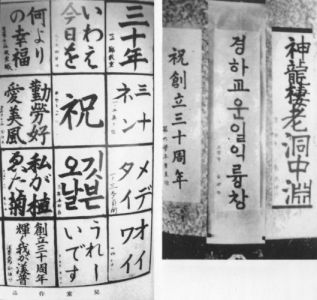 三十年
三十
ネン
メデ
タイ
オイ
ワイ
いわえ
今日を
祝
깃븐
오날
うれし
いです
何より
の幸福
勤労好
愛美風
私が植
ゑた菊
創立三十周年
輝く我が漢普
神龍棲老洞中淵
경하교운일익륭창
祝創立三十周年